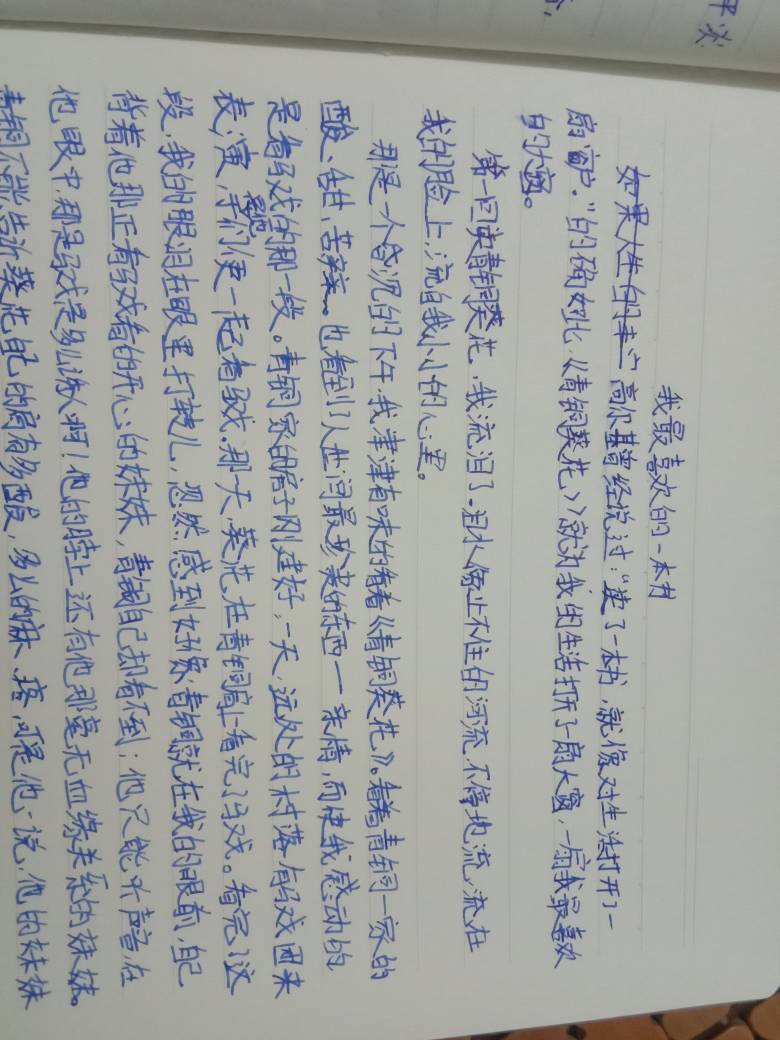 我最喜欢的一本书
高尔基曾经说过:"读了一本书,就像对生活打开了一
扇窗户。"的确如此,《青铜葵花》就为我的生活打开了一扇大窗,一扇我最喜欢
的大窗。
第一回读青铜葵花,我流泪了。泪水像止不住的河流,不停地流,流在
我的脸上,流自我小小的心里。
那是一个昏沉的下午,我津津有味的看着《青铜葵花》。看着青铜一家的
酸、甜、苦、辣。也看到了人世间最珍贵的东西一亲情,而使我感动的
是看马戏的那一段。青铜家的房子刚建好,一天,远处的村落有马戏团来
表演,他们便一起看戏。那天,葵花在青铜肩上看完了马戏。看完了这
段,我的眼泪在眼里打转儿,忽然,感到好像青铜就在我的眼前,自己
背着他那正看马戏看的开心的妹妹,青铜自己却看不到;他只能听声音,在
他眼中,那是马戏是多么诱人啊!他的脖上还有他那毫无血缘关系的妹妹。
青铜不能告诉葵花自己的肩有多酸,多么的麻、疼,可是他一说,他的妹妹